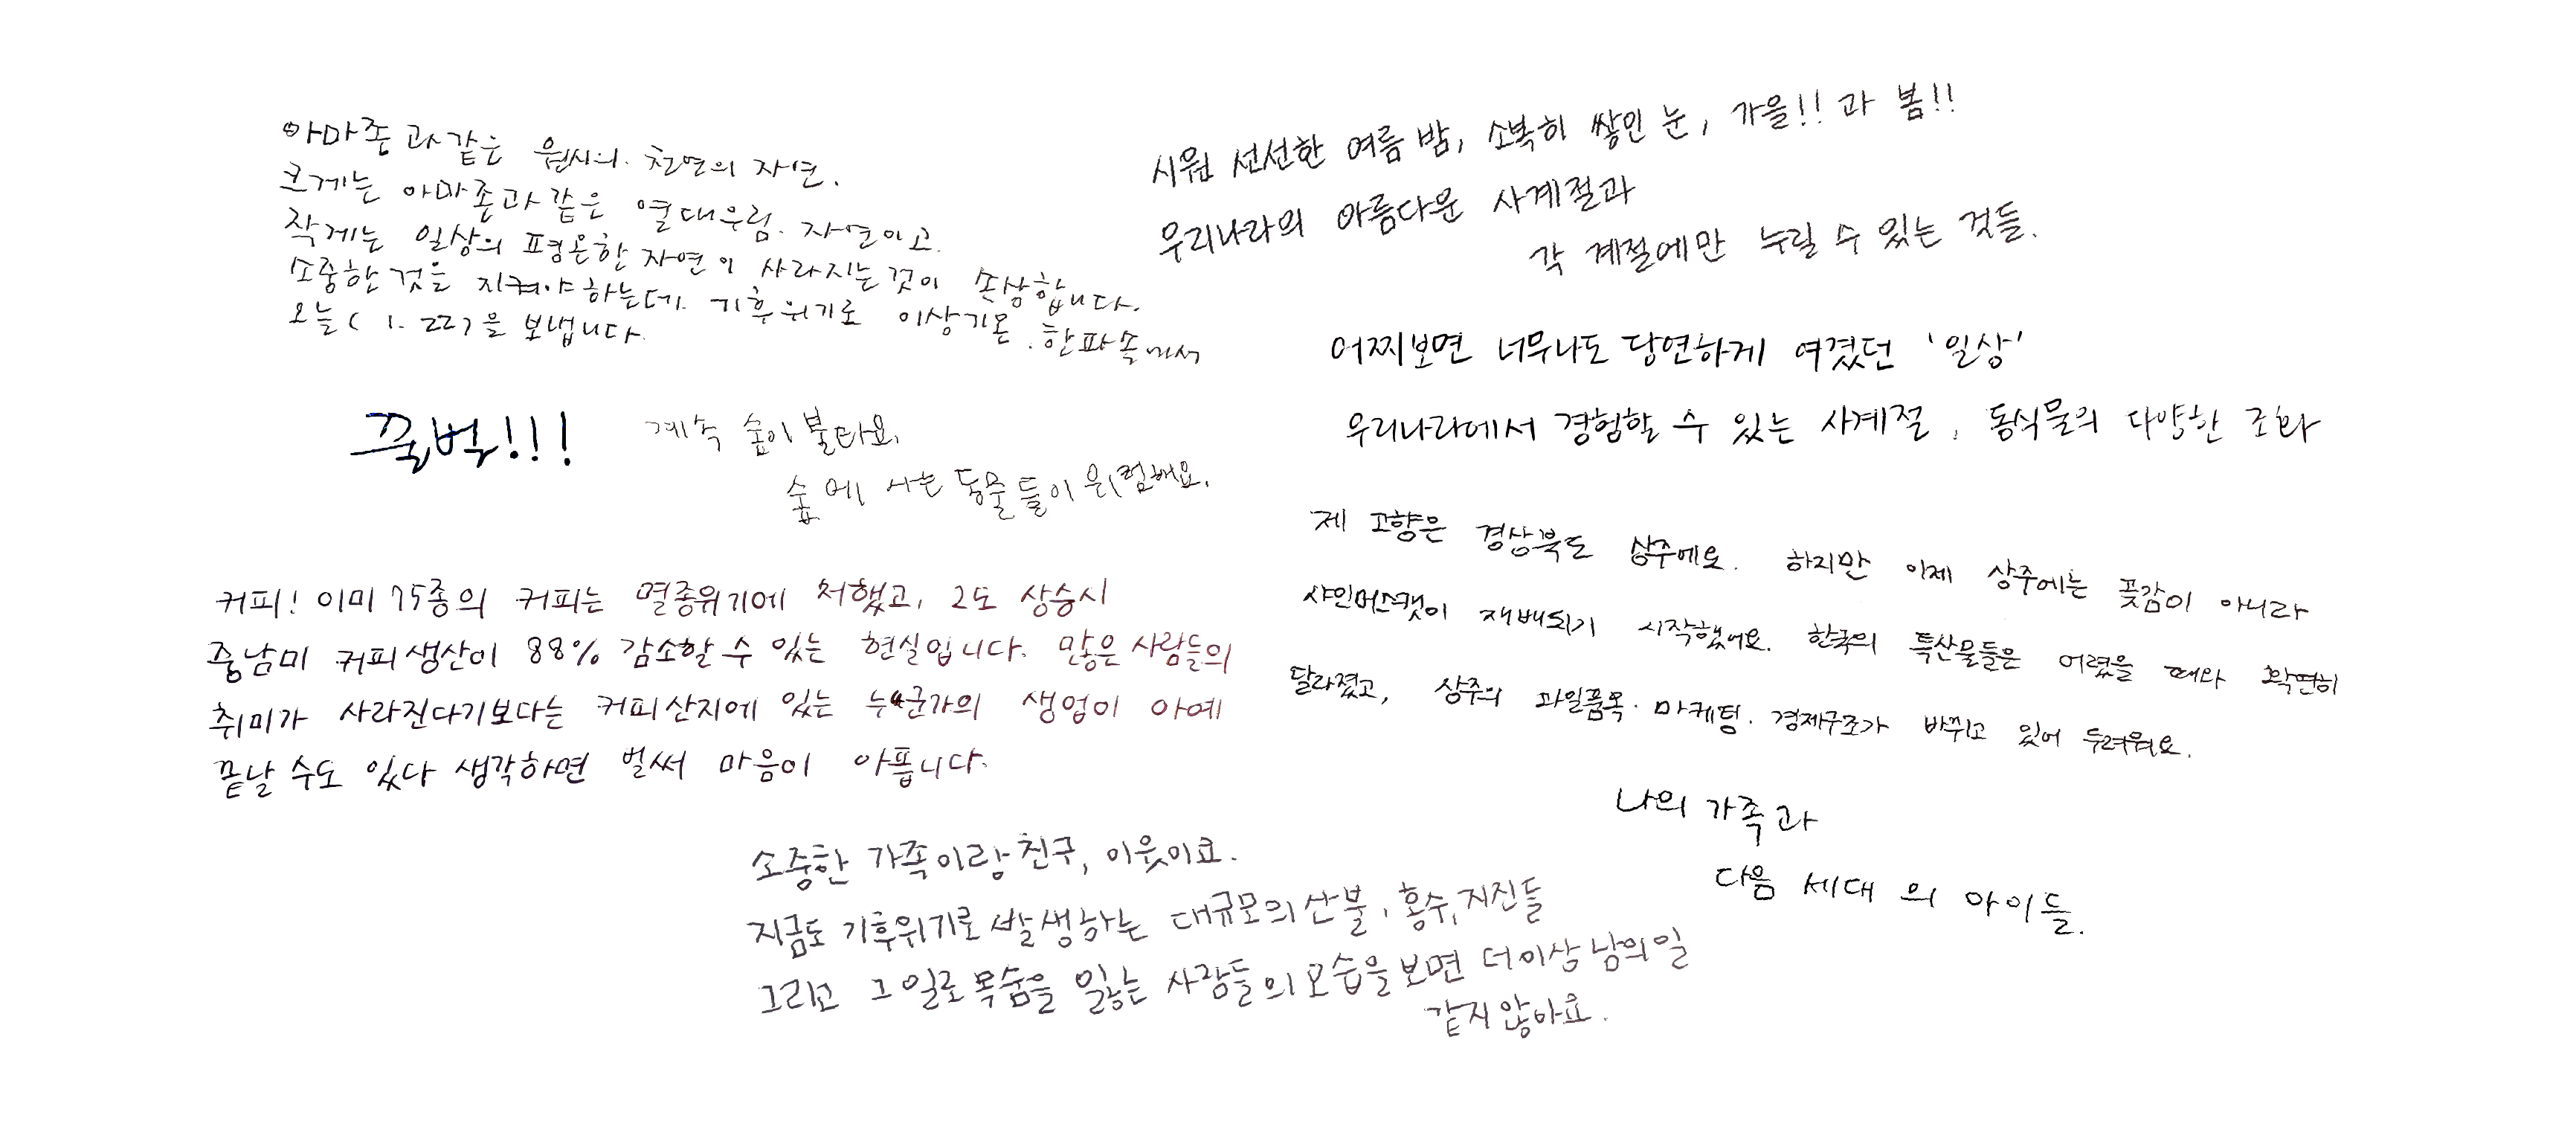 아마존과 같은 원시의. 천연의 자연.
크게는 아마존과 같은 열대우림. 자연이고.
작게는 일상의 평온한 자연이 사라지는 것이 손상합니다.
소중한 것을 지켜야 하는데. 기후위기로 이상기온. 한파속에서
오늘(1.22)을 보냅니다.
시원 선선한 여름 밤, 소복히 쌓인 눈, 가을!! 과 봄!!
우리나라의 아름다운 사계절과
각 계절에만 누릴 수 있는 것들.
어찌보면 너무나도 당연하게 여겼던 '일상'
우리나라에서 경험할 수 있는 사계절, 동식물의 다양한 조화
꿀벌!!!
계속 숲이 불타요.
숲에 사는 동물들이 위험해요.
제 고향은 경상북도 상주에요. 하지만 이제 상주에는 곶감이 아니라
샤인머스캣이 재배되기 시작했어요. 한국의 특산물들은 어렸을 때와 확연히
달라졌고, 상주의 과일품목·마케팅·경제구조가 바뀌고 있어 두려워요.
커피! 이미 75종의 커피는 멸종위기에 처했고, 2도 상승시
중남미 커피생산이 88% 감소할 수 있는 현실입니다. 많은 사람들의
취미가 사라진다기보다는 커피산지에 있는 누군가의 생업이 아예
끝날 수도 있다 생각하면 벌써 마음이 아픕니다.
나의 가족과
다음 세대의 아이들.
소중한 가족이랑 친구, 이웃이요.
지금도 기후위기로 발생하는 대규모의 산불, 홍수, 지진들
그리고 그 일로 목숨을 잃는 사람들의 모습을 보면 더이상 남의 일
같지 않아요.